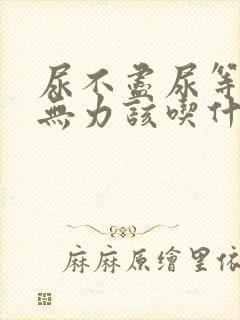 尿不盡尿等
無力該喫什
麻麻原繪里依